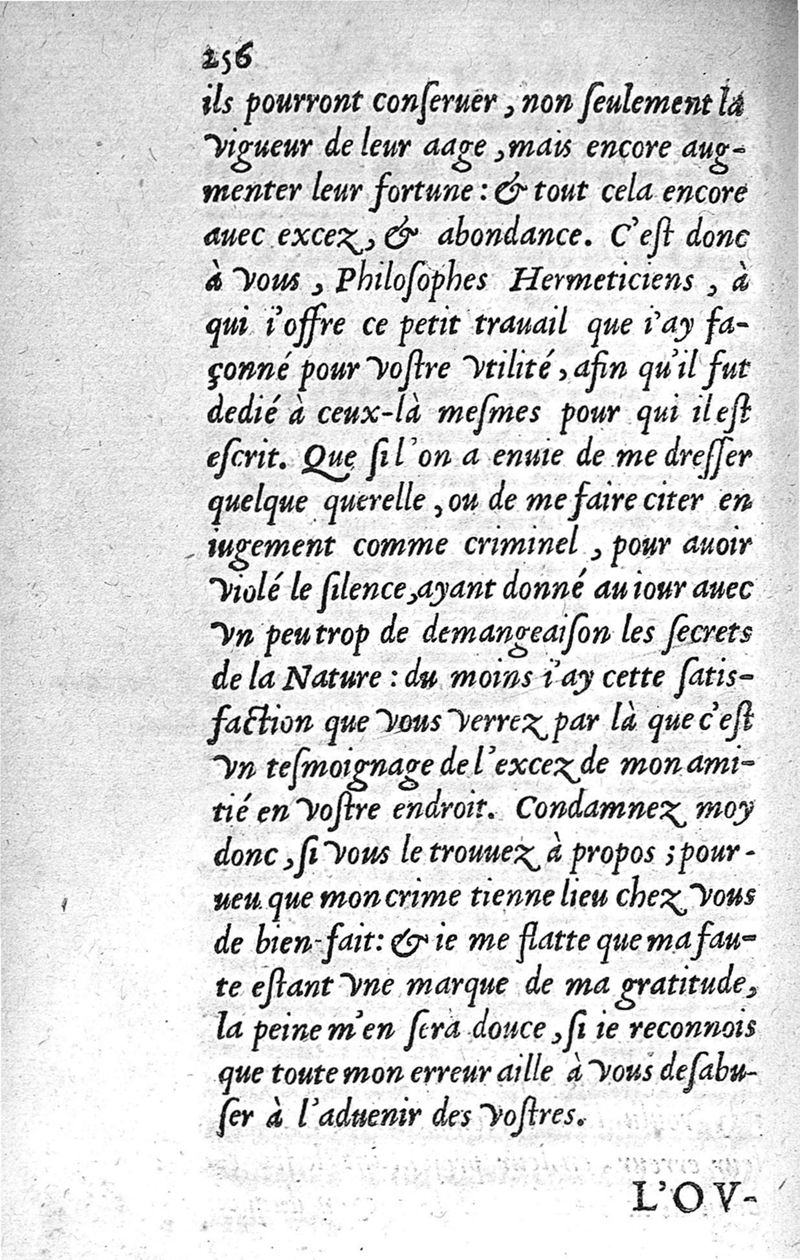 256
ils pourront conſeruer, non ſeulement la
vigueur de leur aage, mais encore aug-
menter leur fortune: & tout cela encore
auec excez, & abondance. C'eſt donc
à vous, Philoſophes Hermeticiens, à
qui i'offre ce petit trauail que i'ay fa-
çonné pour voſtre vtilité, afin qu'il fut
dedié à ceux-là meſmes pour qui il eſt
eſcrit. Que ſi l'on a enuie de me dreſſer
quelque querelle, ou de me faire citer en
iugement comme criminel, pour auoir
violé le ſilence, ayant donné au iour auec
vn peu trop de demangeaiſon les ſecrets
de la Nature: du moins i'ay cette ſatis-
faction que vous verrez par là que c'eſt
vn teſmoignage de l'excez de mon ami-
tié en voſtre endroit. Condamnez moy
donc, ſi vous le trouuez à propos; pour-
ueu que mon crime tienne lieu chez vous
de bien-fait: & ie me flatte que ma fau-
te eſtant vne marque de ma gratitude,
la peine m'en ſera douce, ſi ie reconnois
que toute mon erreur aille à vous deſabu-
ſer à l'aduenir des voſtres.
L'OV-